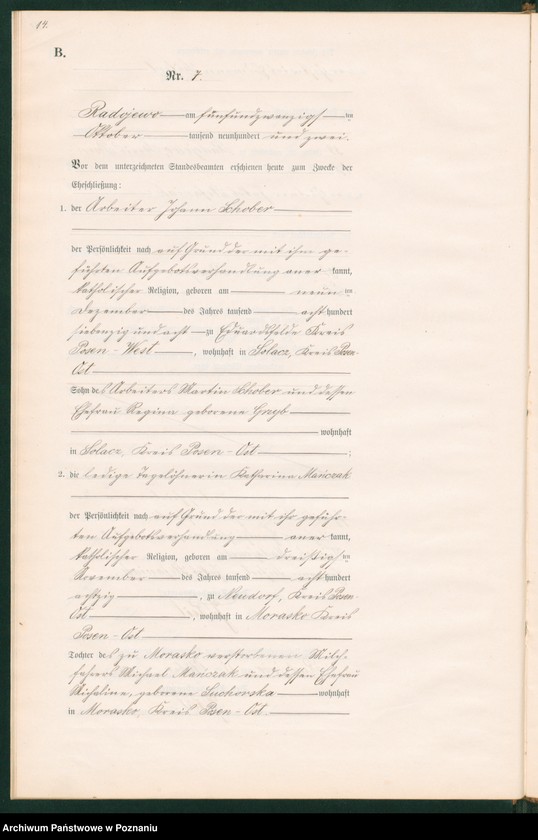 14.
B.
Nr. 7.
Radojewo am fünfundzwanzigsten
Oktober tausend neunhundert und zwei.
Vor dem unterzeichneten Standesbeamten erschienen heute zum Zwecke der
Eheschließung:
1. der Arbeiter Johann Schober
der Persönlichkeit nach auf Grund der mit ihm ge-
führten Aufgebotsverhandlung aner kannt,
katholischer Religion, geboren am neunten
Dezember des Jahres tausend acht hundert
siebenzig und acht zu Eduardsfelde Kreis
Posen - West, wohnhaft in Solacz, Kreis Posen-
Ost
Sohn des Arbeiters Martin Schober und dessen
Ehefrau Regina geborene
wohnhaft
in Solacz, Kreis Posen - Ost;
2. die ledige Tagelöhnerin Katharina Mańczak
der Persönlichkeit nach auf Grund der mit ihr geführ-
ten Aufgebotsverhandung aner kannt,
katholischer Religion, geboren am dreißigsten
November des Jahres tausend acht hundert
achtzig, zu Neudorf, Kreis Posen-
Ost, wohnhaft in Morasko Kreis
Posen - Ost
Tochter des zu Morasko verstorbenen Milch-
fahrers Michael Mańczak und dessen Ehefrau
Michaline, geborene Suchorska wohnhaft
in Morasko, Kreis Posen - Ost.
Archiwum Państwowe w Poznaniu